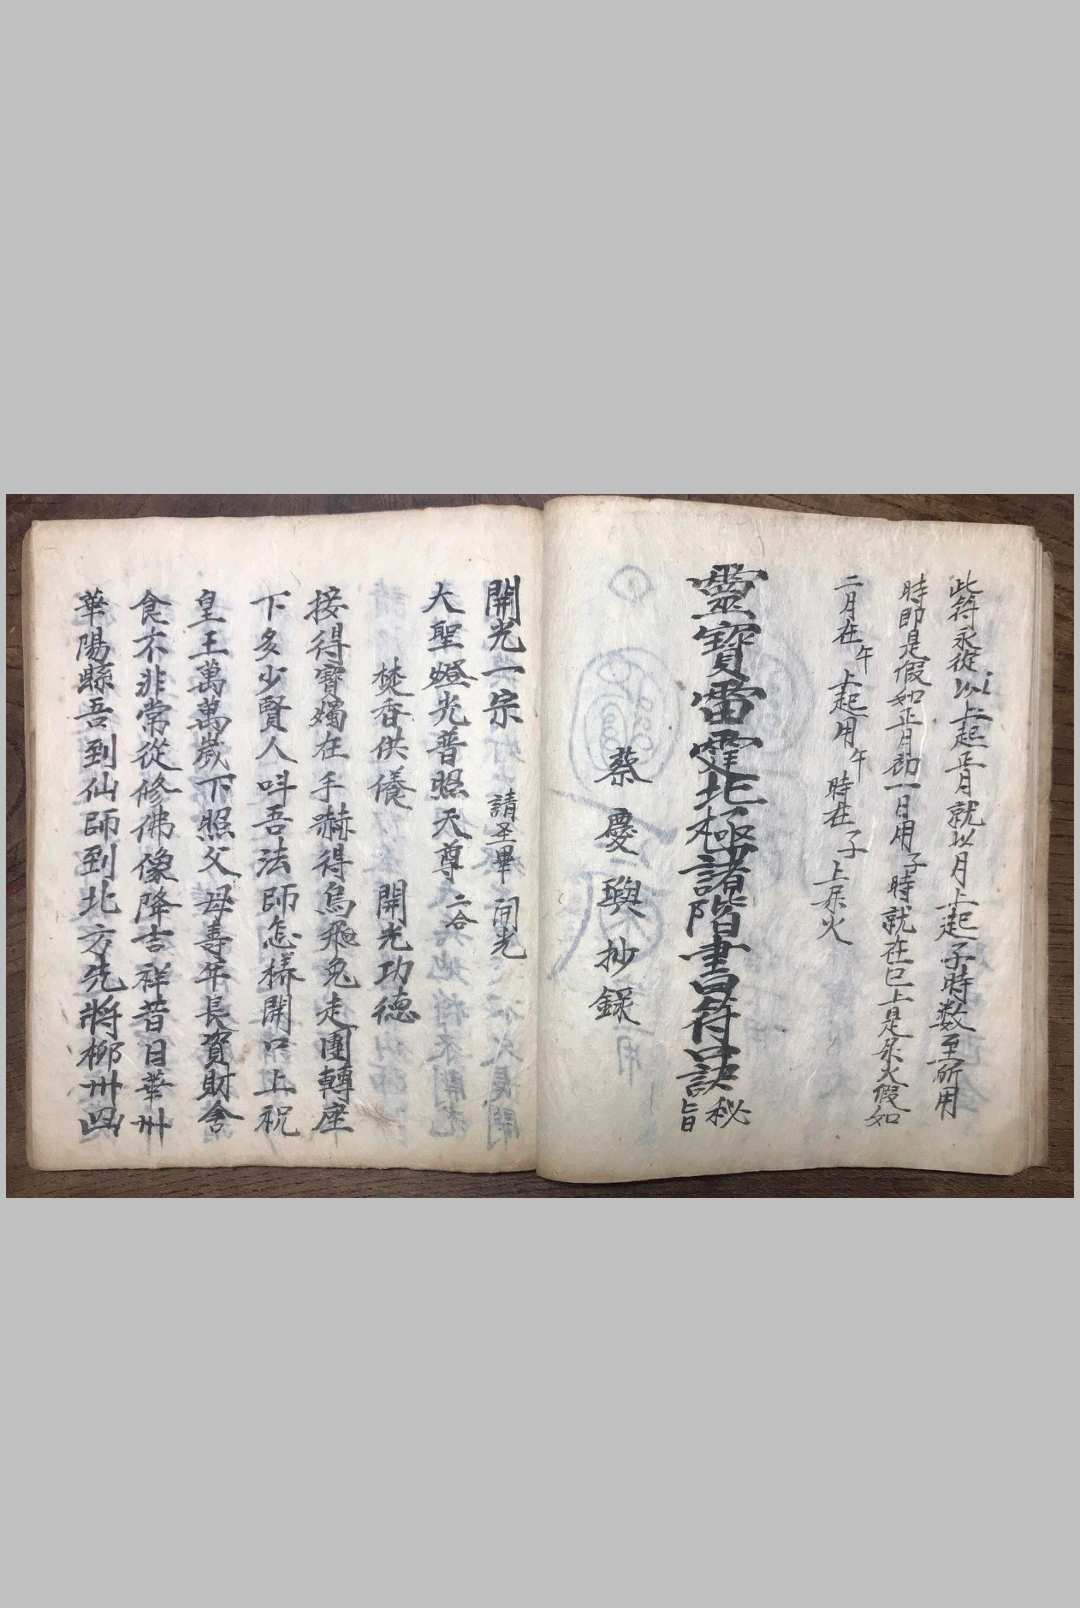 此符永從以上起正月就以月上起子時数至所用
時即是假如正月初一日用子時就在巳上是尽火假如
二月在午上起用午時在子上尽火
靈寶雷霆北極諸階書符口訣秘旨
蔡慶興抄錄
開光一宗 請圣畢開光
大聖燈光普照天尊 二合
焚香供養 開光功德
接得寶燭在手赫得烏飛兔走團轉座
下多少賢人呌吾法師怎樣開口上祝
皇王萬萬歲下照父母壽年長資財舍
食不非常從修佛像降吉祥昔日華州
華陽縣吾到仙師到北方先將柳州